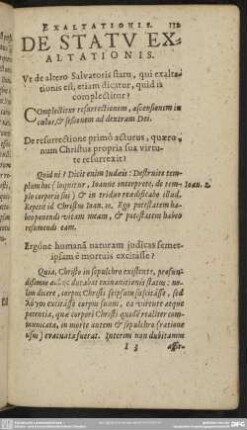 EXALTATIONIS.
DE STATV EX-
ALTATIONIS.
Vt de altero Salvatoris statu, qui exalta-
tionis est, etiam dicatur, quid is
complectitur?
Complectitur resurrectionem, ascensionem in
cælos, & sessionem ad dextram Dei.
De resurrectione primò acturus, quæro,
num Christus propria sua virtu-
te resurrexit?
Quid ni? Dicit enim Iudæis: Destruite tem-
plum hoc (loquitur, Ioanne interprete, de tem-
Ioan. 2.
plo corporis sui) & in triduo reædificabo illud.
Repetit id Christus Ioan. 10. Ego potestatem ha-
beo ponendi vitam meam, & potestatem habeo
resumendi eam.
Ergóne humanā naturam judicas semet-
ipsam è mortuis excitasse?
Quia, Christo in sepulchro existente, profun-
dissimus adhuc durabat exinanitionis status: no-
lim dicere, corpus Christi seipsum suscitasse, sed
λόγον excitasse corpus suum, ea virtute atque
potentia, quæ corpori Christi quidē realiter com-
municata, in morte autem & sepulchro (ratione
usus) evacuata fuerat. Interim non dubitamus
I 3
asse-